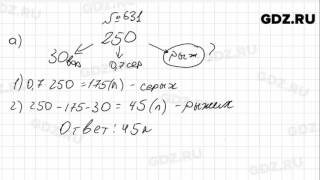 GDZ.RU
№631
а) 250
30 вор 0,7 сер рыж ?
1) 0,7·250=175(л) - серых
2) 250-175-30=45(л) - рыжих
Ответ: 45л